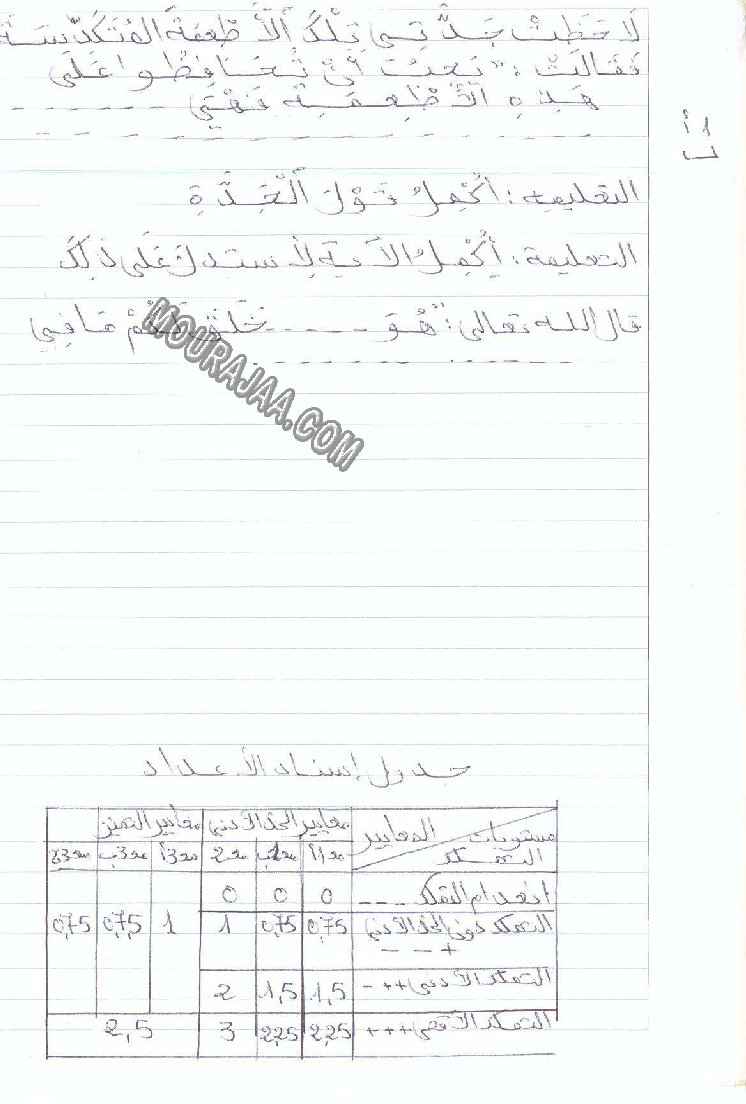 لَاحَظَتْ جَدَّتِي تِلْكَ الْأَطْعِمَةَ المُتَكَدِّسَةَ
فَقَالَتْ : " يَجِبُ أَنْ تُحَافِظُوا عَلَى
هَذِهِ الْأَطْعِمَةِ فَهْيَ - - - - - -
أ1
ب
التعليمة : أُكْمِلُ قَوْلَ الْجَدَّةِ
التعليمة : أُكْمِلُ الآيَةَ لِأَسْتَدِلَّ عَلَى ذَلِكَ
قال الله تعالى : " هُوَ - - - - - خَلَقَ لَكُمْ مَا فِي
- - - - - - - -
MOURAJAA.COM
جدول إسناد الأعداد
مستويات التملك المعايير معايير الحد الأدنى معايير التميز
مع1أ مع1ب مع2 مع3أ مع3ب مع3ج
انعدام التملك - - - 0 0 0
التملك دون الحد الأدنى + - - 0,75 0,75 1 1 0,75 0,75
التملك الأدنى ++ - 1,5 1,5 2
التملك الأقصى +++ 2,25 2,25 3 2,5